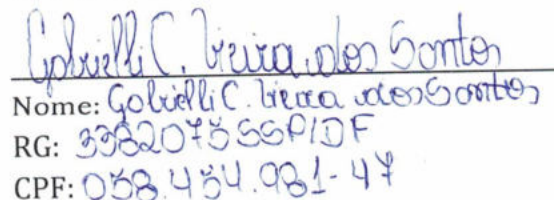 Gabrielli C. Vieira dos Santos
Nome: Gabrielli C. Vieira dos Santos
RG: 3382075 SSP/DF
CPF: 058.454.981-47